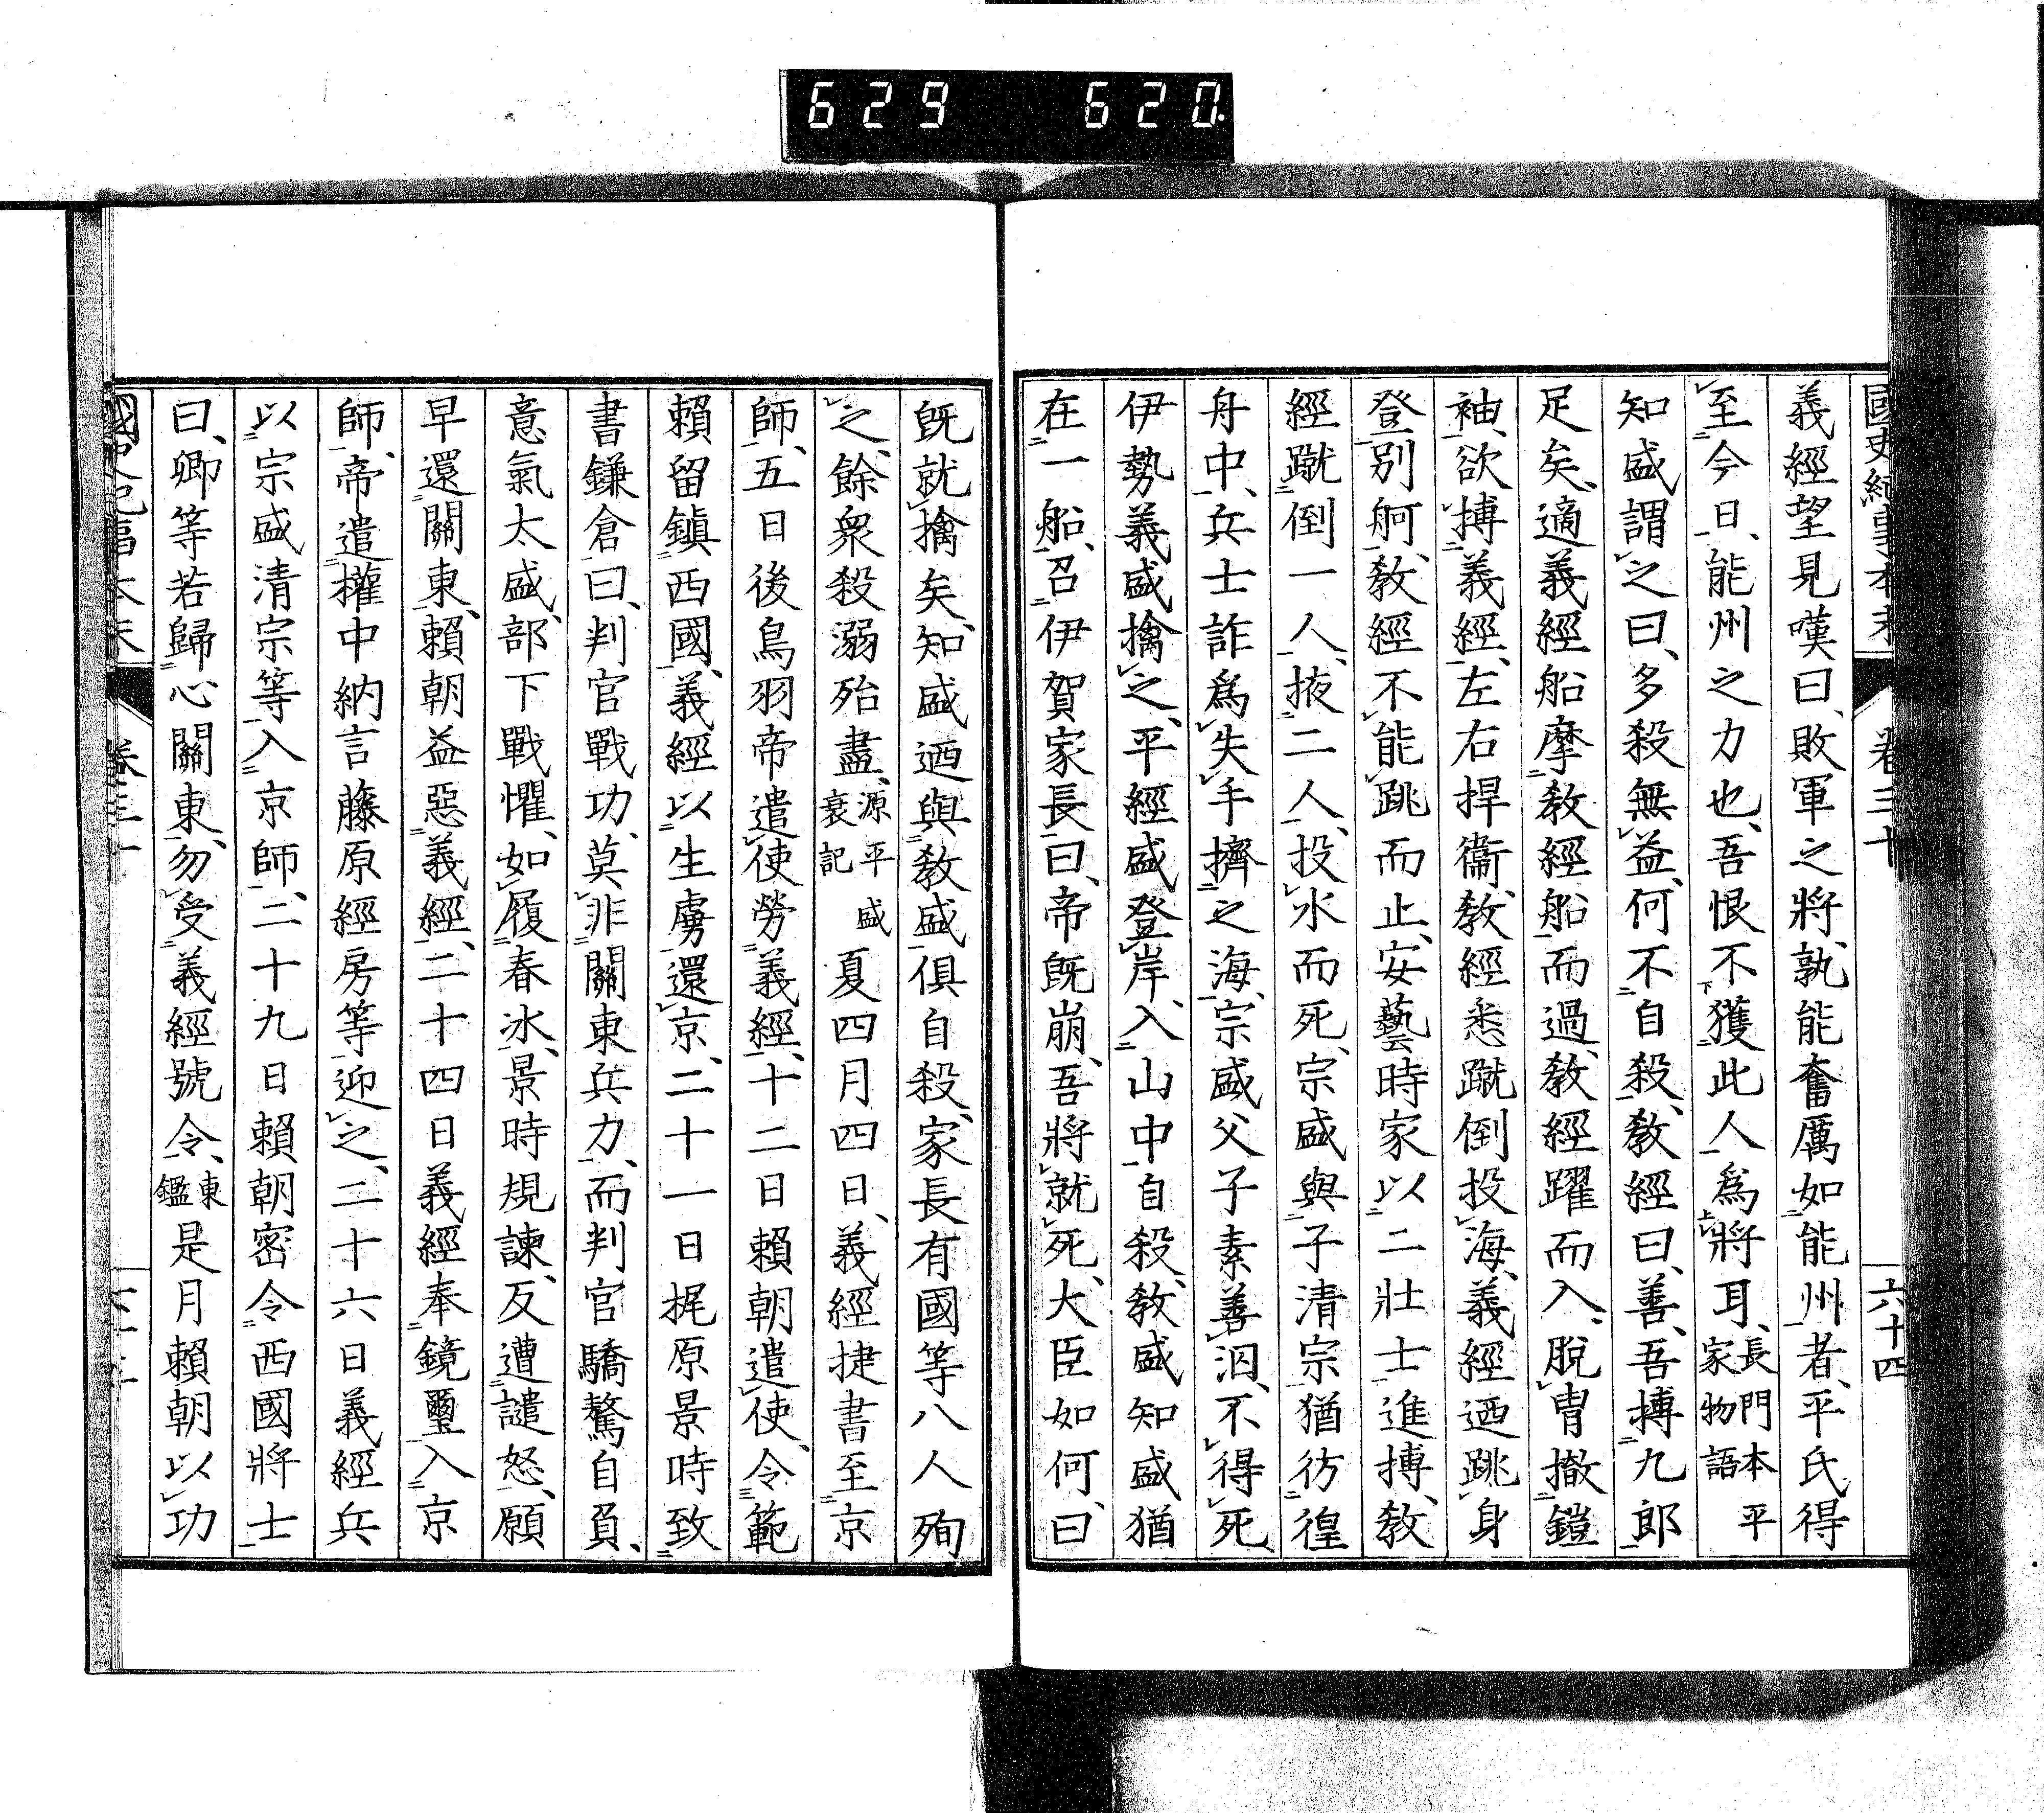 629 620
國史紀事本末 卷三十 六十四
義經望見嘆曰、敗軍之將、孰能奮厲如能州者、平氏得
至今日、能州之力也、吾恨不獲此人爲將耳、長門本平家物語
知盛謂之曰、多殺無益、何不自殺、敎經曰、善、吾搏九郎
足矣、適義經船摩敎經船而過、敎經躍而入、脫冑撤鎧
袖、欲搏義經、左右捍衞、敎經悉蹴倒投海、義經迺跳身
登別舸、敎經不能跳而止、安藝時家以二壯士進搏、敎
經蹴倒一人、掖二人、投水而死、宗盛與子清宗猶彷徨
舟中、兵士詐爲失手擠之海、宗盛父子素善泅、不得死、
伊勢義盛擒之、平經盛登岸、入山中自殺、敎盛知盛猶
在一船、召伊賀家長曰、帝旣崩、吾將就死、大臣如何、曰
旣就擒矣、知盛迺與敎盛俱自殺、家長有國等八人殉
之、餘衆殺溺殆盡、源平盛衰記 夏四月四日、義經捷書至京
師、五日後鳥羽帝遣使勞義經、十二日賴朝遣使、令範
賴留鎭西國、義經以生虜還京、二十一日梶原景時致
書鎌倉曰、判官戰功、莫非關東兵力、而判官驕驁自負、
意氣太盛、部下戰懼、如履春冰、景時規諫、反遭譴怒、願
早還關東、賴朝益惡義經、二十四日義經奉鏡璽入京
師、帝遣權中納言藤原經房等迎之、二十六日義經兵
以宗盛清宗等入京師、二十九日賴朝密令西國將士
曰、卿等若歸心關東、勿受義經號令、東鑑 是月賴朝以功